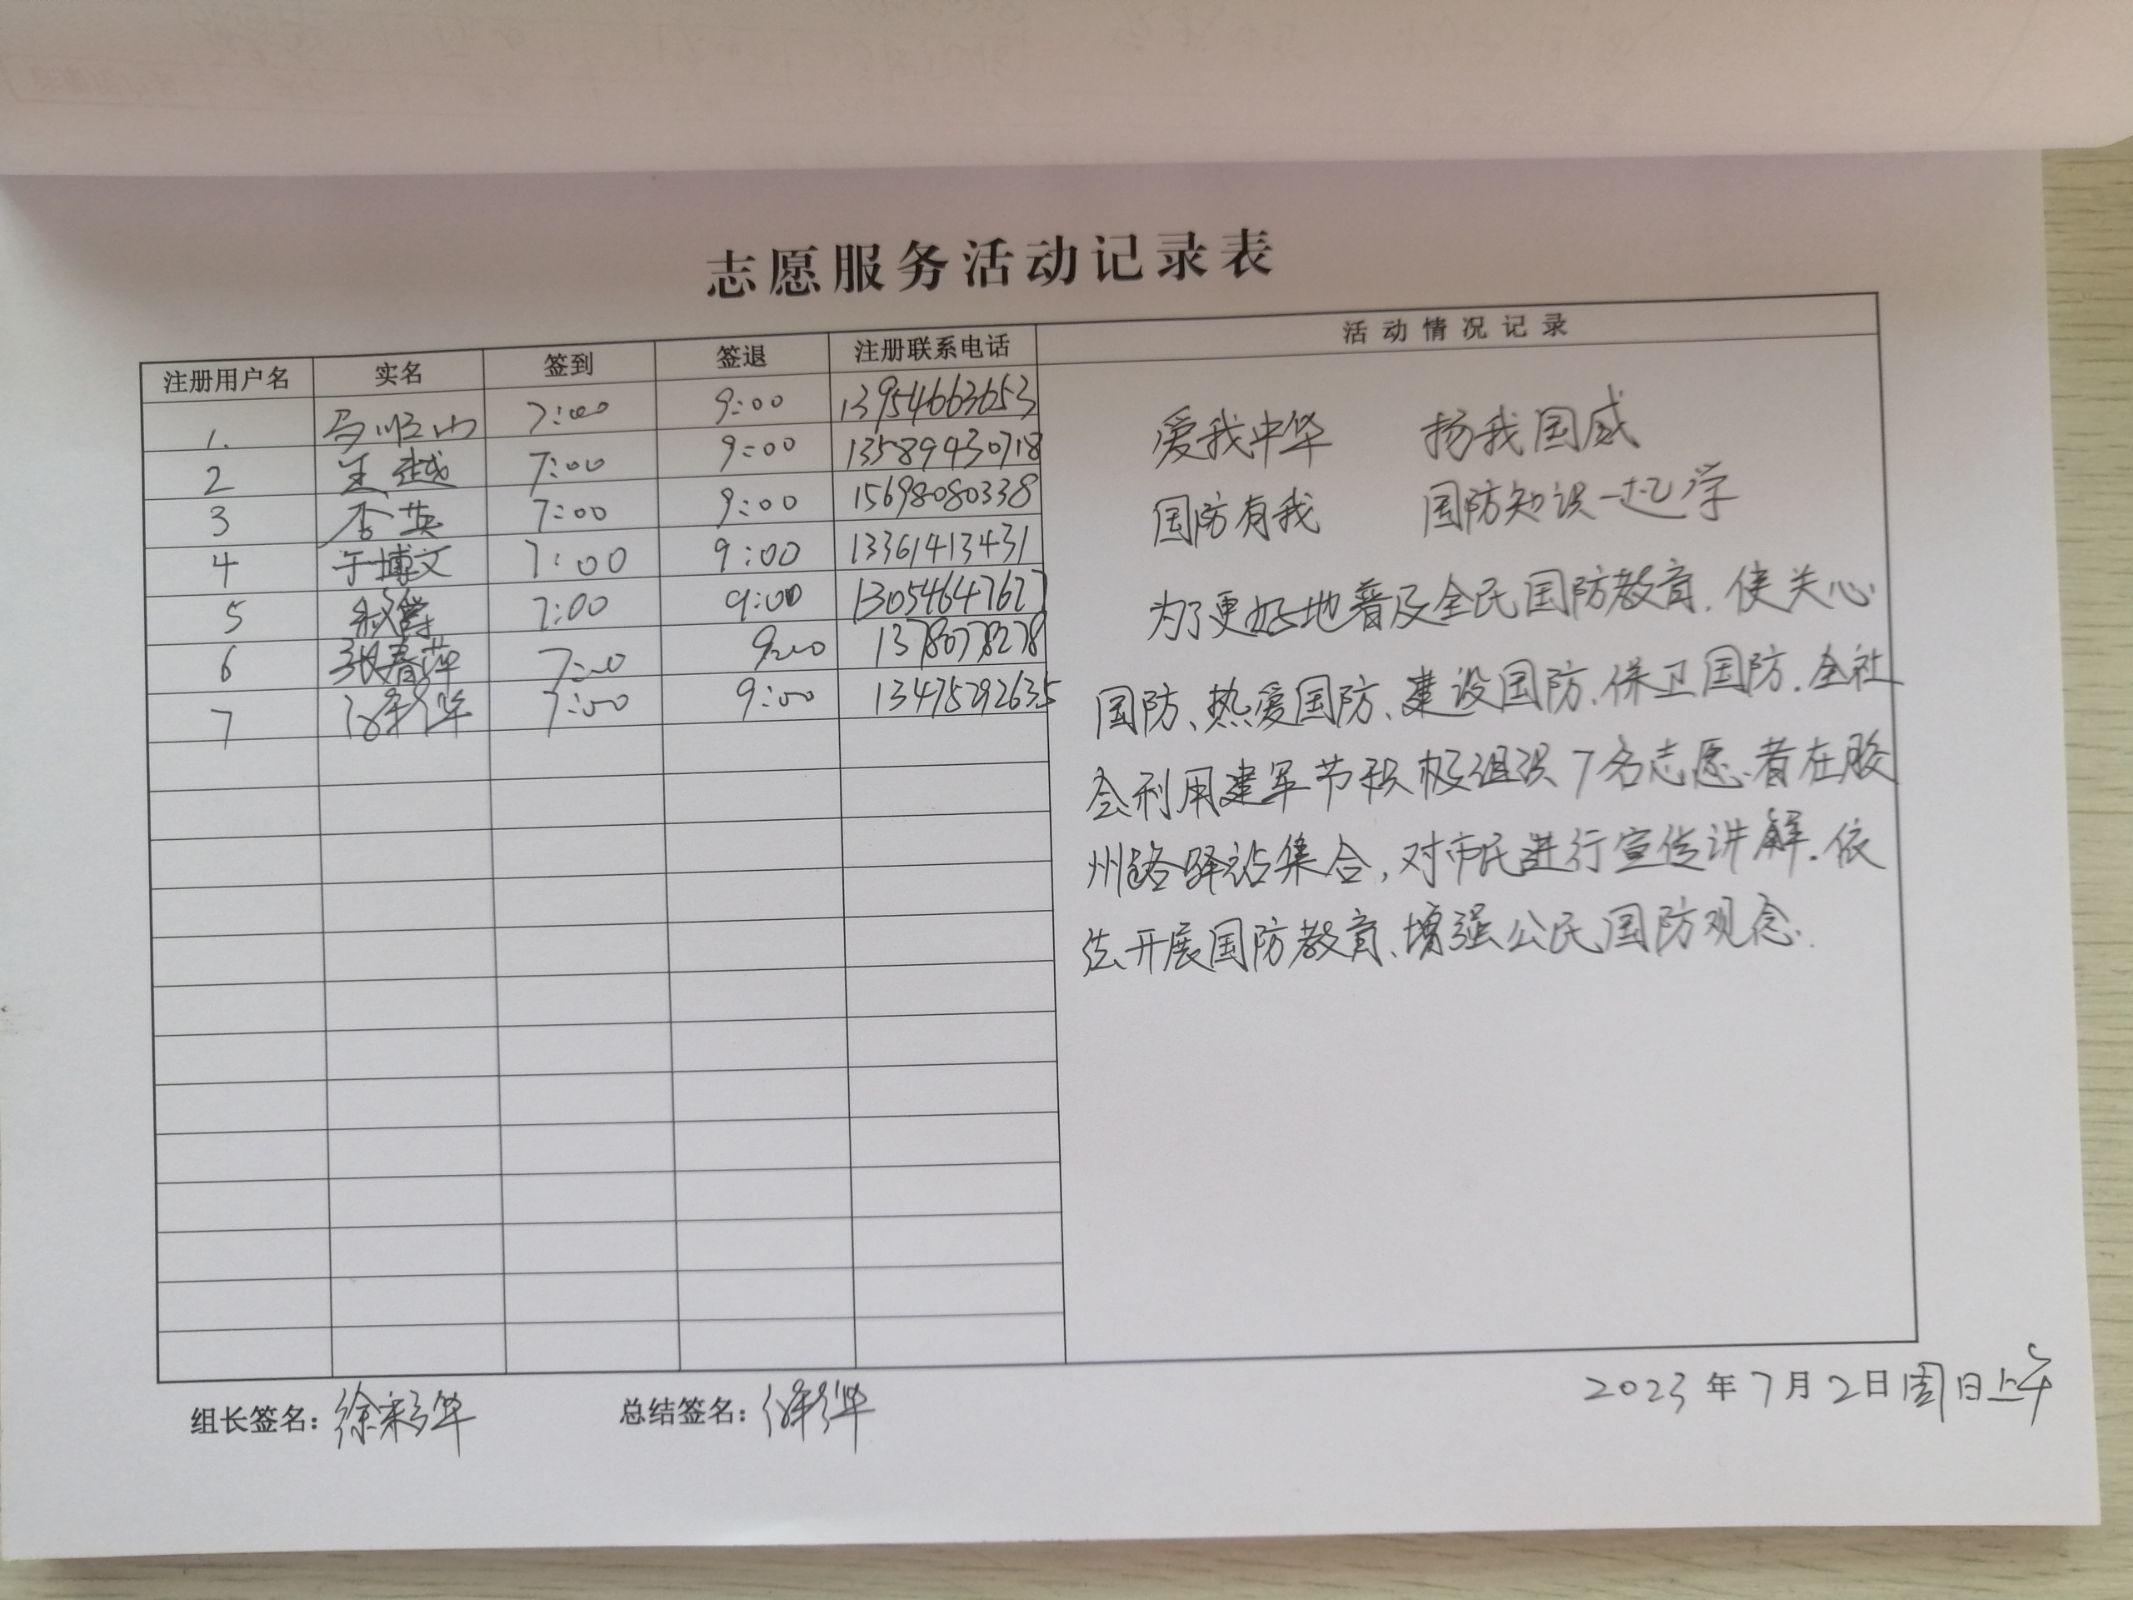 志愿服务活动记录表
注册用户名 实名 签到 签退 注册联系电话 活动情况记录
1. 马順山 7:00 9:00 13954663653
2 王越 7:00 9:00 13589430718
3 李英 7:00 9:00 15698080338
4 于博文 7:00 9:00 13361413431
5 7:00 9:00 13054647627
6 张春萍 7:00 9:00 1378078278
7 徐彩华 7:00 9:00 13475292635
爱我中华 扬我国威
国防有我 国防知识一起学
为了更好地普及全民国防教育,使关心
国防、热爱国防、建设国防、保卫国防.全社
会利用建军节积极组识7名志愿者在胶
州路驿站集合,对市民进行宣传讲解.依
法开展国防教育、增强公民国防观念.
组长签名:徐彩华 总结签名:徐彩华 2023年7月2日周日上午